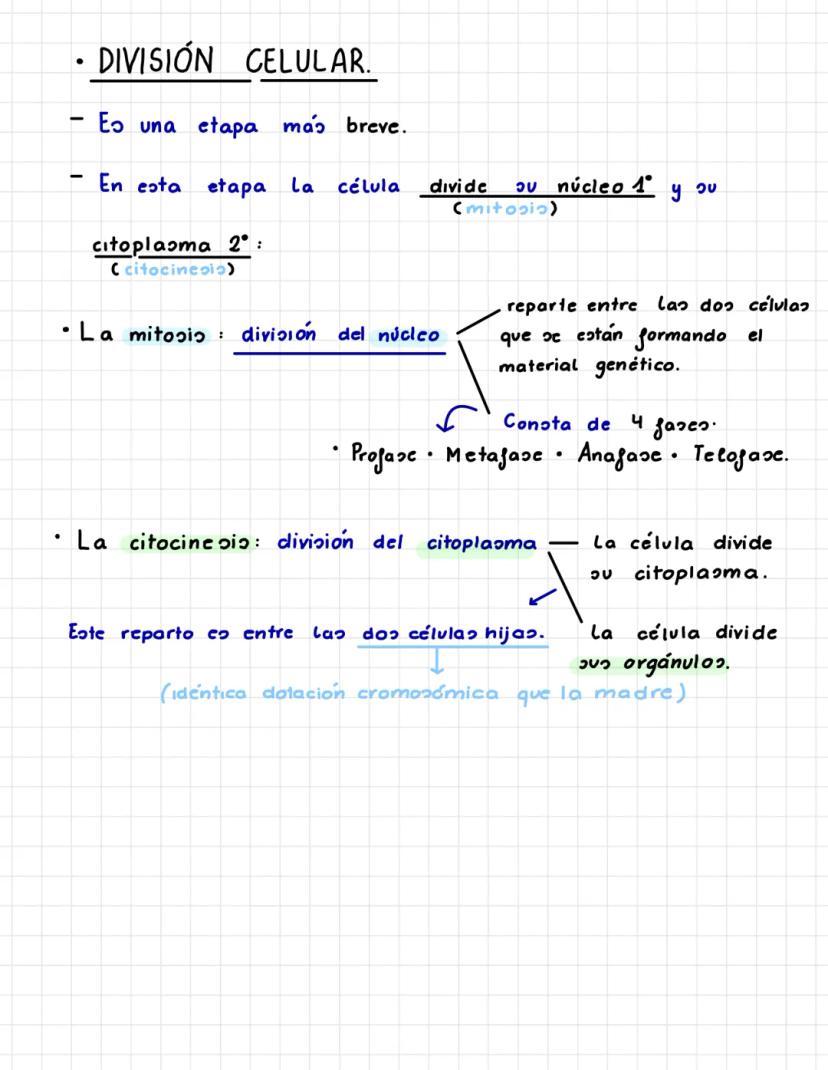 · DIVISIÓN CELULAR.
- Es una etapa más breve.
- En esta etapa la célula divide su núcleo 1° y su
(mitosis)
citoplasma 2° :
(citocinesis)
· La mitosis : división del núcleo
reparte entre las dos células
que se están formando el
material genético.
Consta de 4 fases.
· Profase · Metafase · Anafase · Telofase.
· La citocinesis: división del citoplasma
La célula divide
su citoplasma.
Este reparto es entre las dos células hijas.
La célula divide
sus orgánulos.
(idéntica dotación cromosómica que la madre)